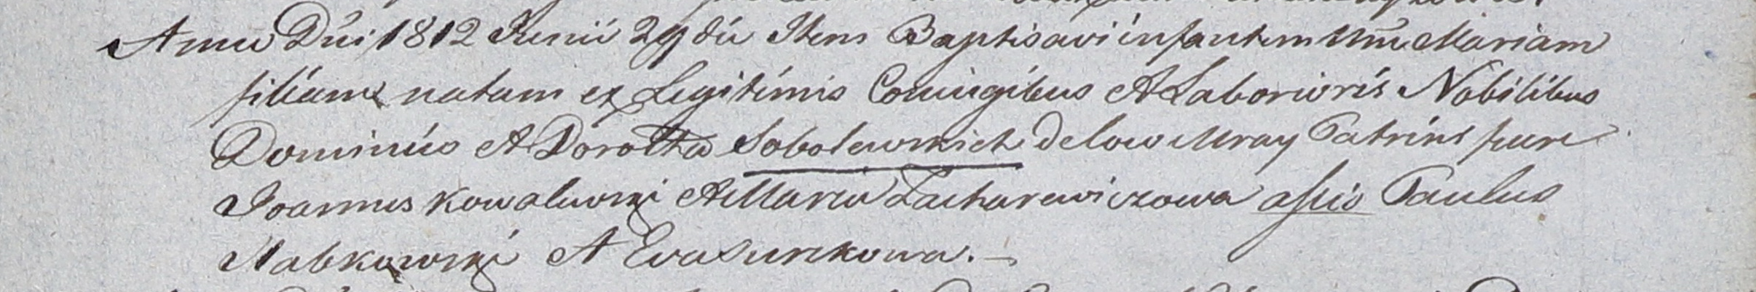 Anno Dni 1812 Junii 29 die Item Baptisavi infantem Nne Mariam
filiam natam ex Legitimis Coniugibus A Laboriosis Nobilibus
Dominico A Dorothea Sobolewskich de Patrini fuere
Joannes Kowalewski A Maria Zacharewiczowa assis Paulus
Nabkowski A Eva Surckowa.